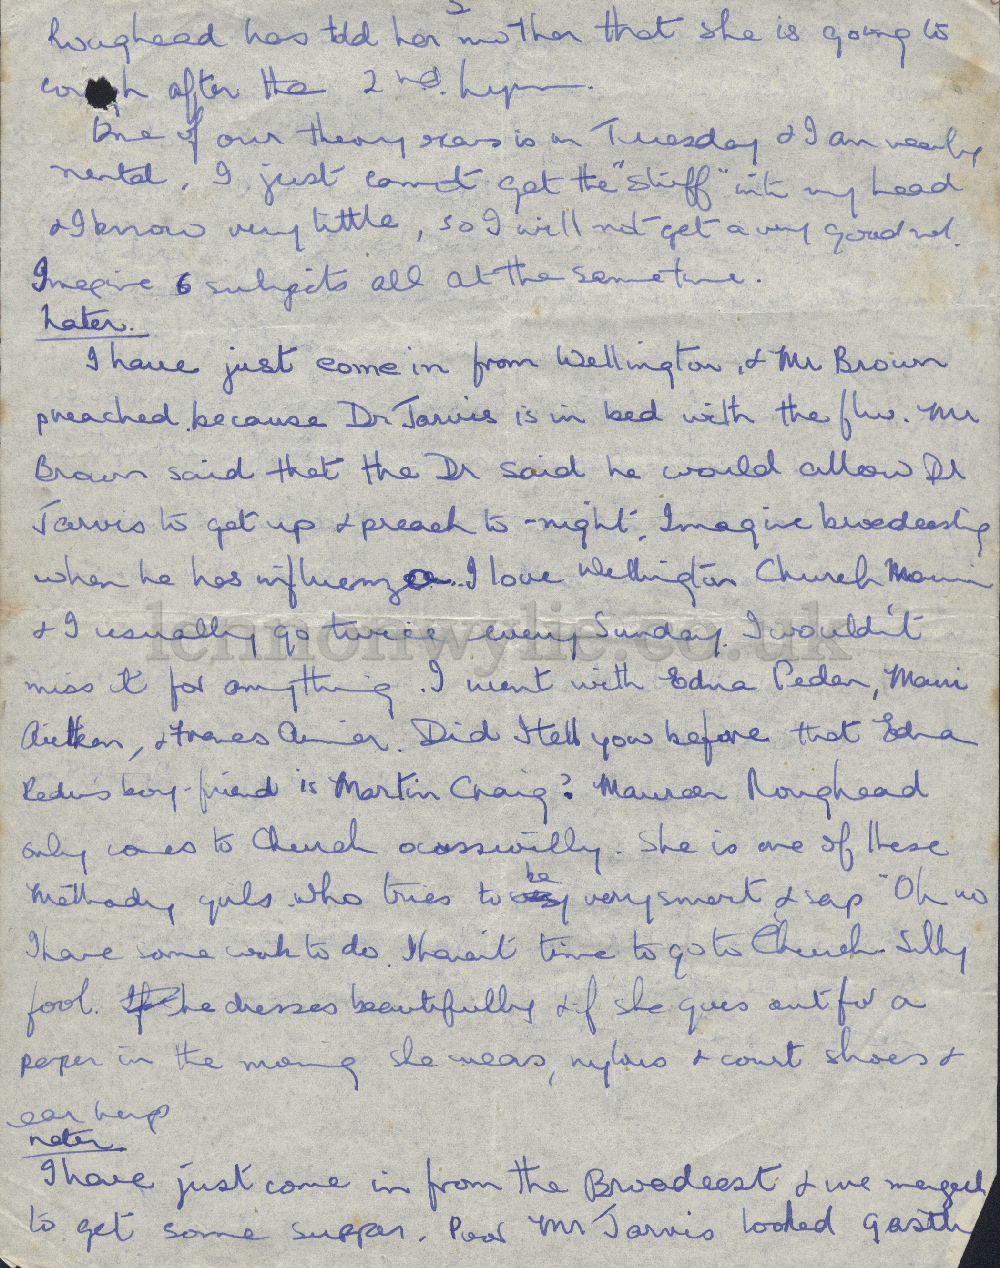 Roughead has told her mother that she is going to
cough after the 2nd. hymn.
One of our theory exams is on Tuesday & I am nearly
mental. I just cannot get the "stuff" into my head
& I know very little, so I will not get a very good
Imagine 6 subjects all at the same time.
Later.
I have just come in from Wellington, & Mr Brown
preached because Dr Jarvis is in bed with the flu. Mr
Brown said that the Dr said he would allow Dr
Jarvis to get up & preach to-night. Imagine broadcasting
when he has influenza. I love Wellington Church
& I usually go twice every Sunday. I wouldn't
miss it for anything. I went with Edna Peden, Mairi
Aitken, & Frances
Did I tell you before that Edna
Peden's boy-friend is Martin Craig? Maureen Roughead
only comes to Church occassionilly. She is one of these
girls who tries to be very smart & say "Oh no
I have some work to do. I haven't time to go to Church. Silly
fool. She dresses beautifully & if she goes out for a
paper in the morning she wears, nylons & court shoes &
ear
Later
I have just come in from the Broadcast & we managed
to get some supper. Poor Mr Jarvis looked gastly
lennonwylie.co.uk